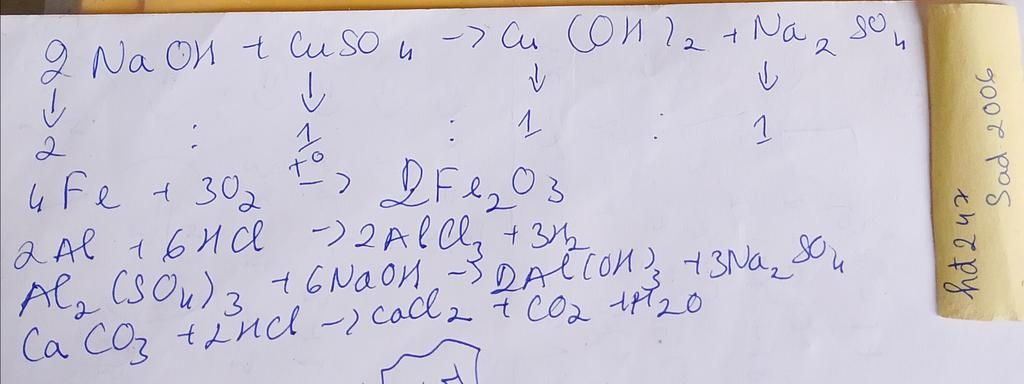 2 NaOH + CuSO4 -> Cu(OH)2 + Na2SO4
↓ ↓ ↓ ↓
2 : 1 : 1 : 1
4Fe + 3O2 t° -> 2Fe2O3
2Al + 6HCl -> 2AlCl3 + 3H2
Al2(SO4)3 + 6NaOH -> 2Al(OH)3 + 3Na2SO4
CaCO3 + 2HCl -> CaCl2 + CO2 + H2O
hd247
Sad 2006